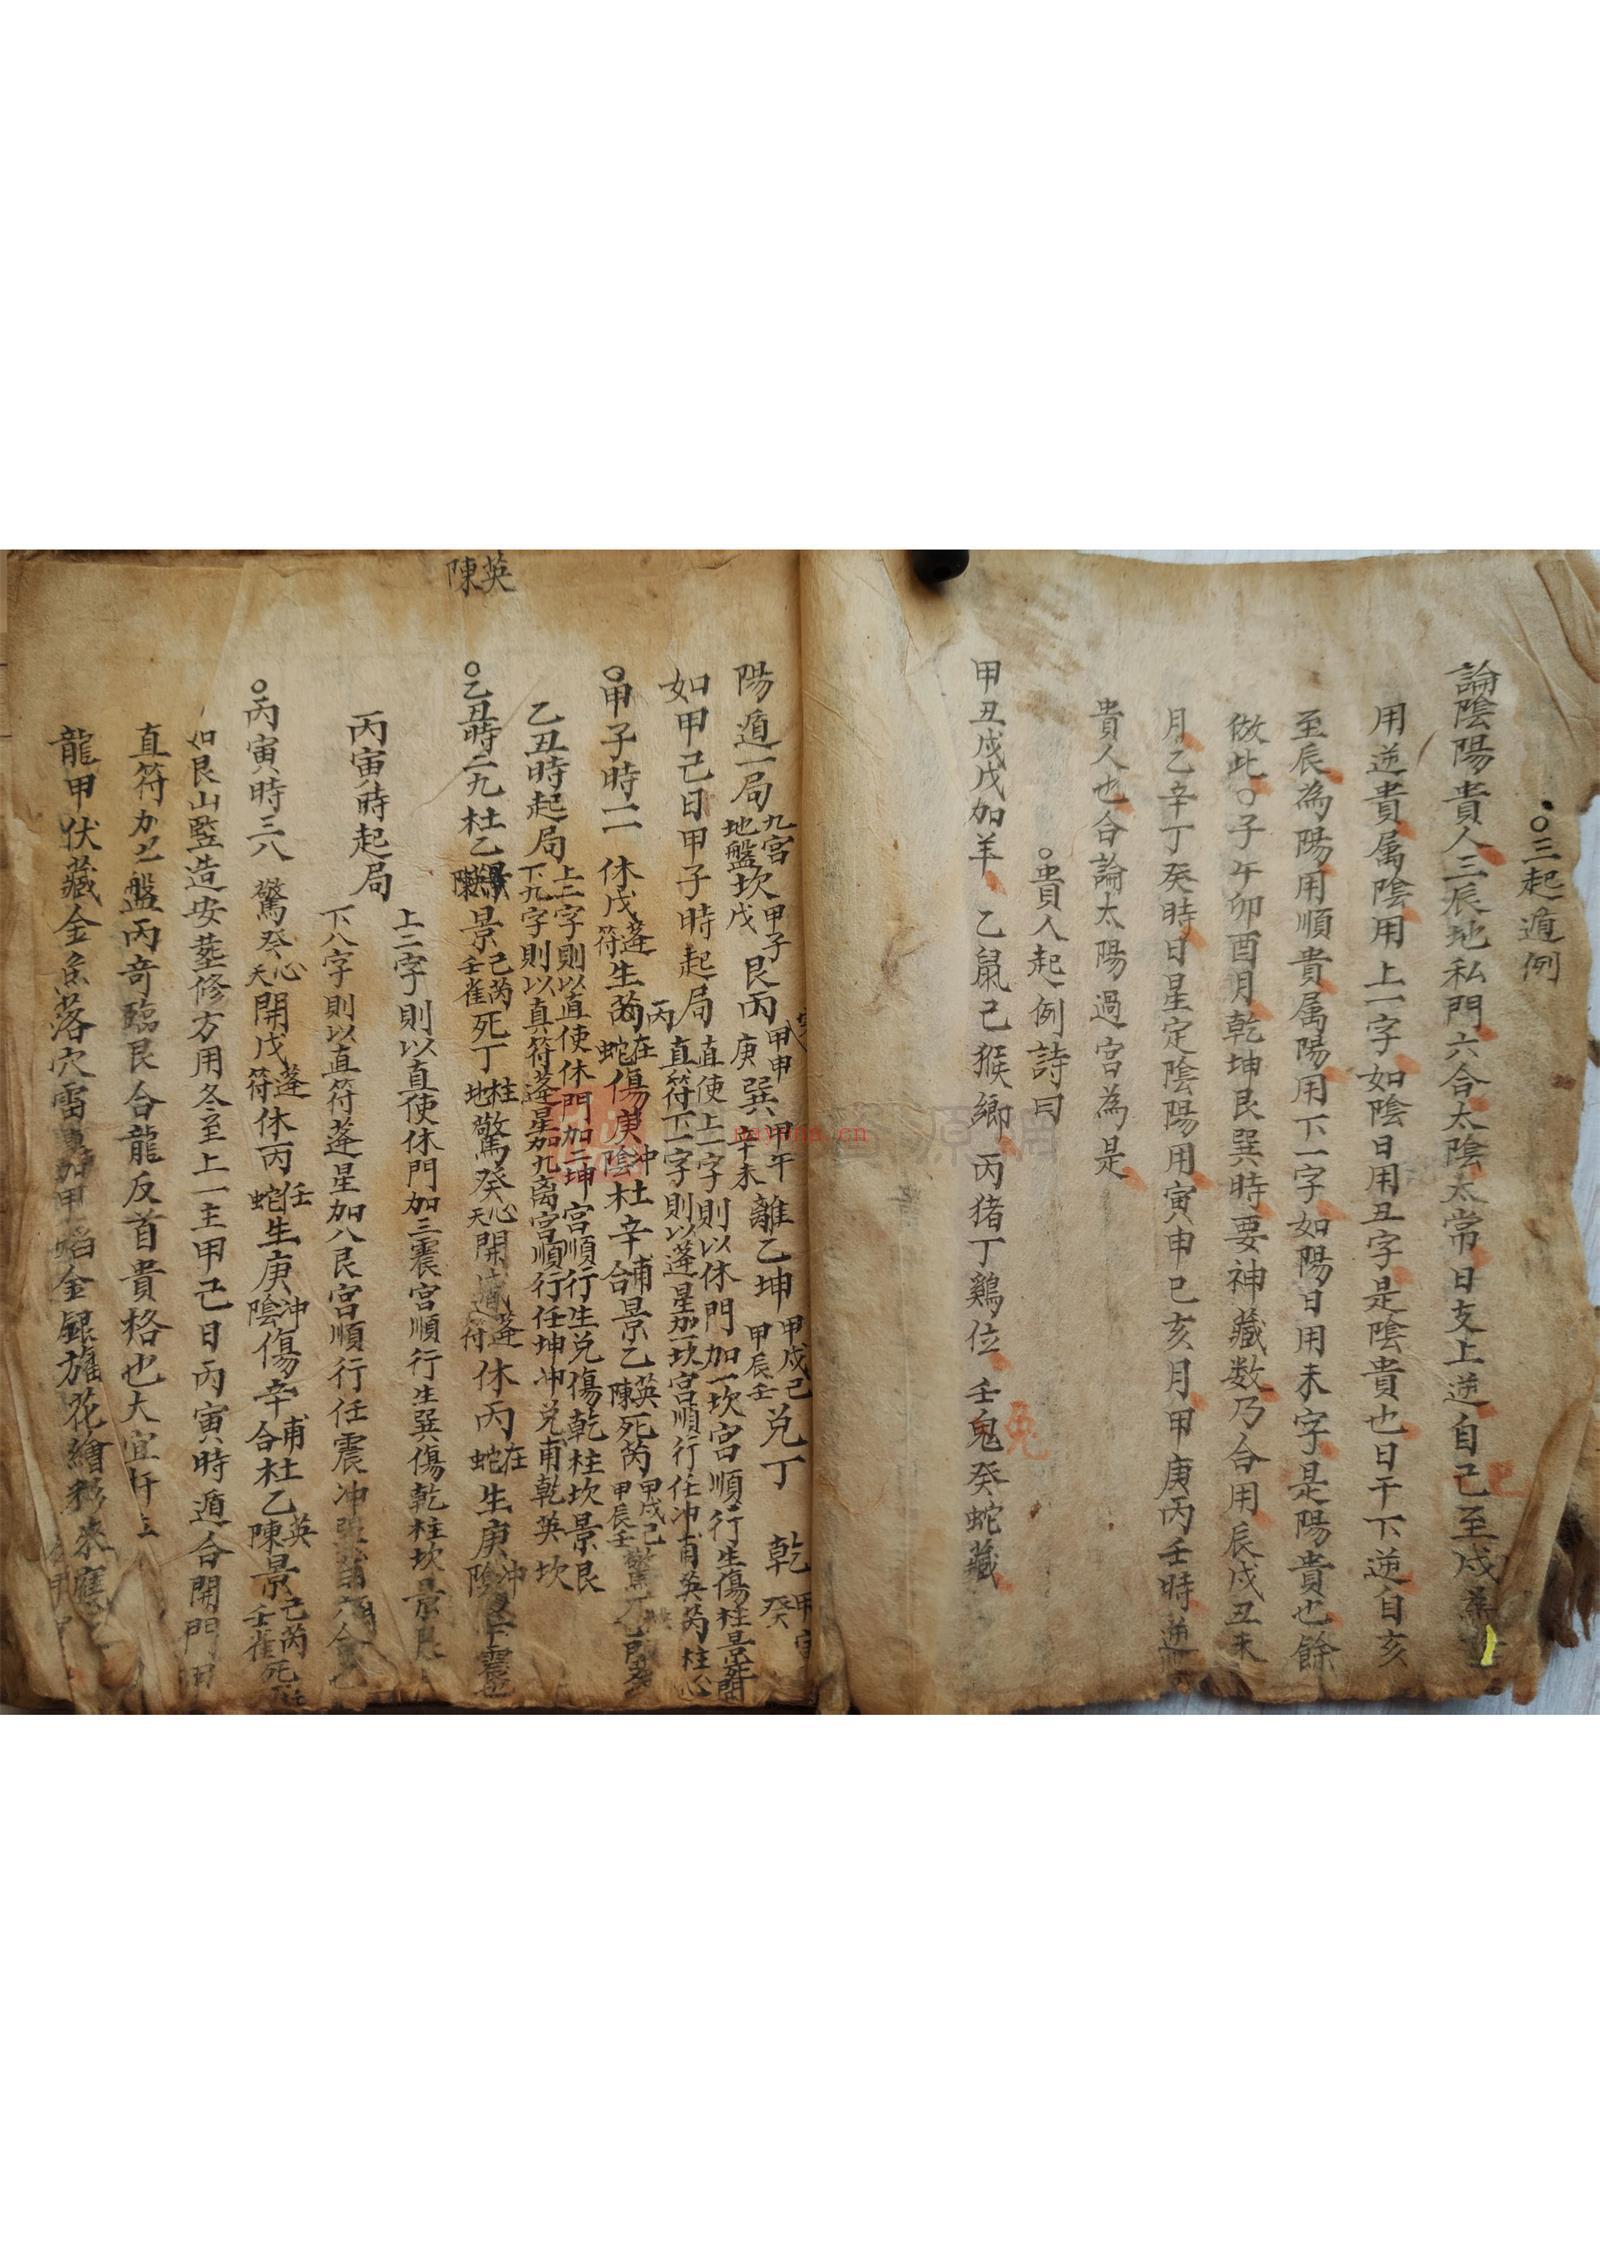 ○三起遁例
論陰陽貴人三辰地私門六合太陰太常日支上逆自己至戍為
用逆貴属陰用上一字如陰日用丑字是陰貴也日干下逆自亥
至辰為陽用順貴属陽用下一字如陽日用未字是陽貴也餘
倣此○子午卯酉月乾坤艮巽時要神藏数乃合用辰戍丑未
月乙辛丁癸時日星定陰陽用寅申巳亥月甲庚丙壬時逆
貴人也合論太陽過宮為是
○貴人起例詩曰
甲丑戍戊加羊乙鼠己猴鄉丙猪丁鷄位壬鬼癸蛇藏
兎
陽遁一局九宮地盤坎甲子戊艮丙甲申庚巽甲午辛未離乙坤甲戍己甲辰壬兑丁乾癸
如甲己日甲子時起局直使上一字則以休門加一坎宮順行生傷柱景死開
直符下一字則以蓬星加一坎宮順行任冲甫英芮柱心
○甲子時一一休戊蓬符生丙在蛇傷庚冲陰杜辛甫合景乙英陳死芮甲戍己甲辰壬
乙丑時起局上二字則以直使休門加二坤宮順行生兑傷乾柱坎景艮
下九字則以真符蓬星加九离宮順行任坤冲兑甫乾英坎
○乙丑時二九杜乙英陳景己芮壬雀死丁柱地驚癸心天開蓬符休丙在蛇生庚冲陰
陳英
丙寅時起局上二字則以直使休門加三震宮順行生巽傷乾柱坎景艮
下八字則以直符蓬星加八艮宮順行任震冲
○丙寅時三八驚癸心天開戊蓬符休丙任蛇生庚冲陰傷辛甫合杜乙英陳景己芮壬雀死
如艮山監造安塟修方用冬至上一主甲己日丙寅時遁合開門甲
直符加地盤丙奇臨艮合龍反首貴格也大宜
龍甲伏藏金魚落穴雷金銀旗花繪彩來應